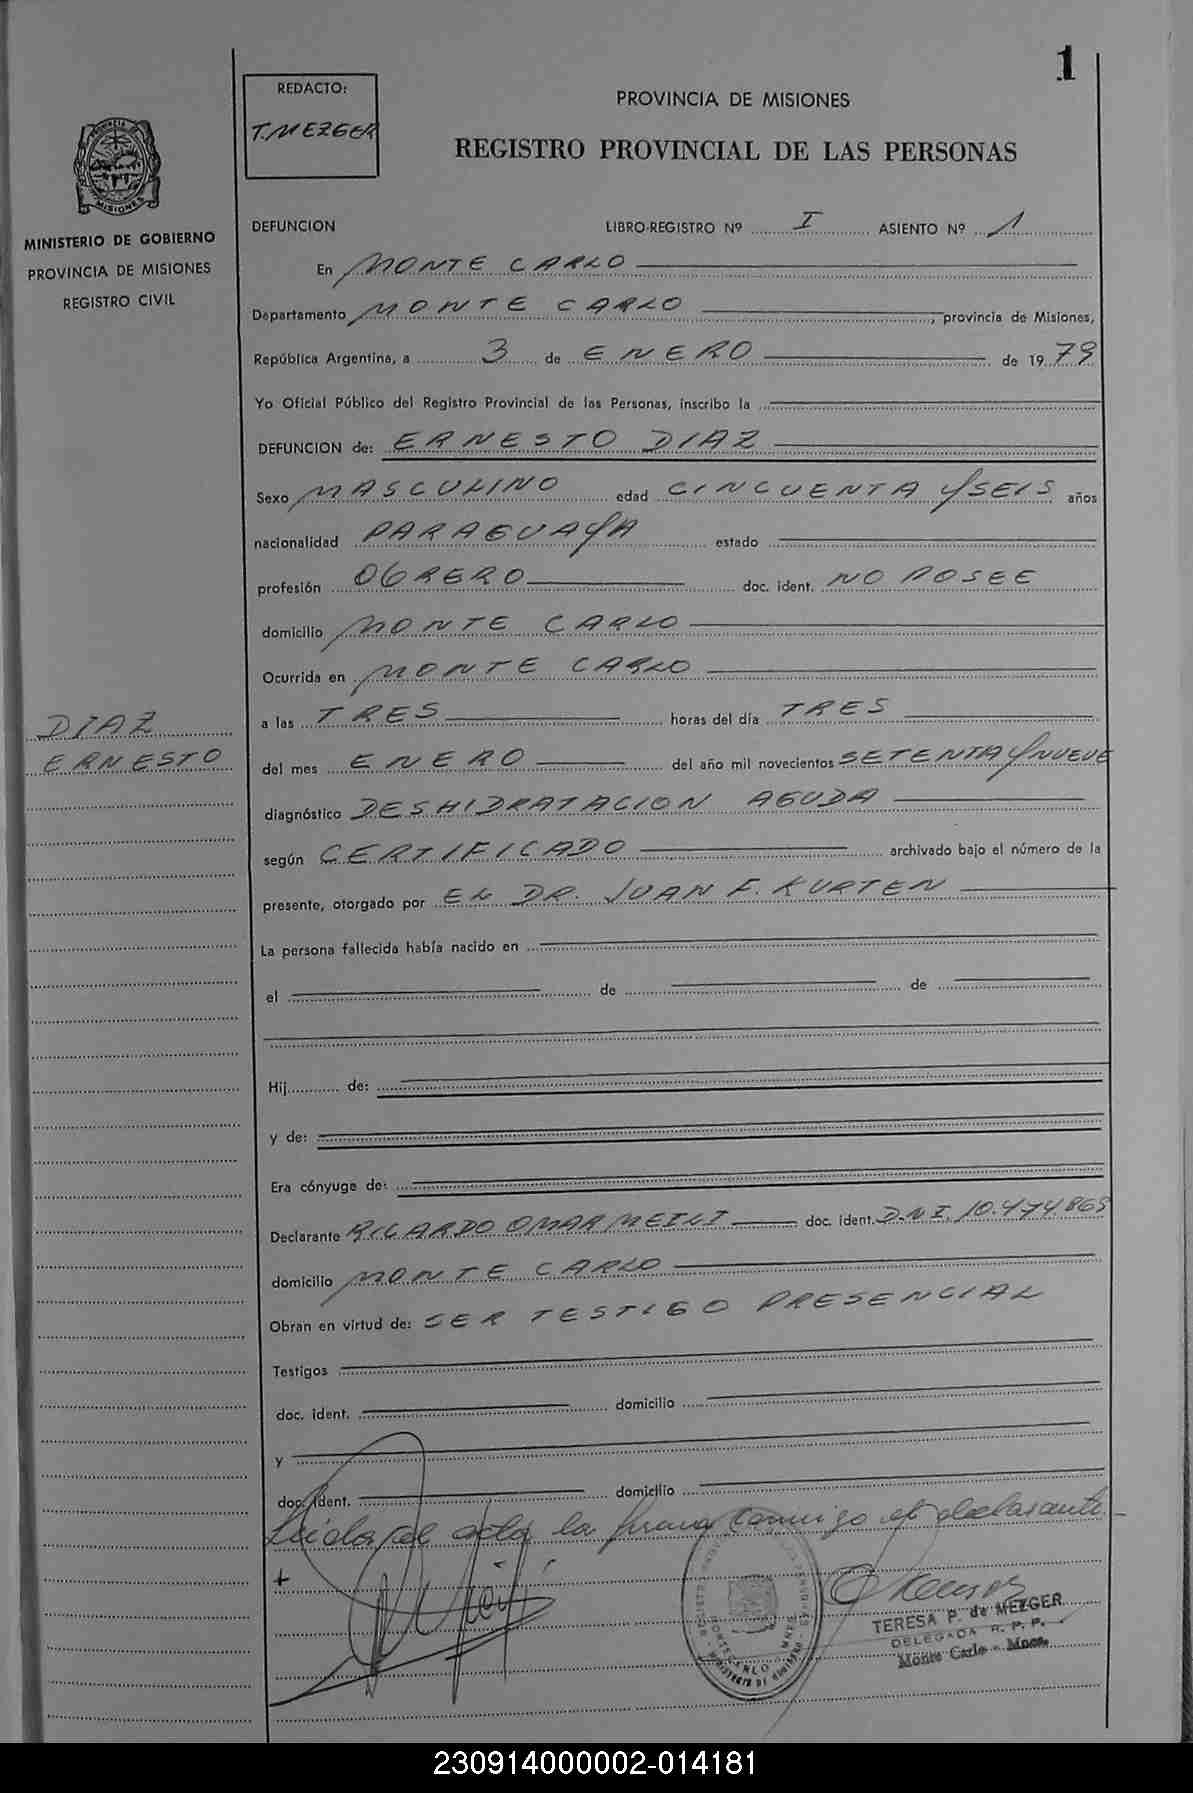 1
REDACTO:
T. MEZGER
PROVINCIA DE MISIONES
REGISTRO PROVINCIAL DE LAS PERSONAS
PROVINCIA DE
MISIONES
MINISTERIO DE GOBIERNO
PROVINCIA DE MISIONES
REGISTRO CIVIL
DEFUNCION LIBRO-REGISTRO Nº I ASIENTO Nº 1
En MONTE CARLO
Departamento MONTE CARLO, provincia de Misiones,
República Argentina, a 3 de ENERO de 1979
Yo Oficial Público del Registro Provincial de las Personas, inscribo la
DEFUNCION de: ERNESTO DIAZ
Sexo MASCULINO edad CINCUENTA Y SEIS años
nacionalidad PARAGUAYA estado
profesión OBRERO doc. ident. NO POSEE
domicilio MONTE CARLO
Ocurrida en MONTE CARLO
DIAZ
ERNESTO
a las TRES horas del día TRES
del mes ENERO del año mil novecientos SETENTA Y NUEVE
diagnóstico DESHIDRATACION AGUDA
según CERTIFICADO archivado bajo el número de la
presente, otorgado por EL DR. JUAN F. KURTEN
La persona fallecida había nacido en
el de de
Hij de:
y de:
Era cónyuge de:
Declarante RICARDO OMAR MEILI doc. ident. D.N.I. 10.474869
domicilio MONTE CARLO
Obran en virtud de: SER TESTIGO PRESENCIAL
Testigos
doc. ident. domicilio
y
doc. ident. domicilio
Leida el acta la firma conmigo el declarante.
TERESA P. de MEZGER
DELEGADA R. P. P.
Monte Carlo - Mnes.
230914000002-014181